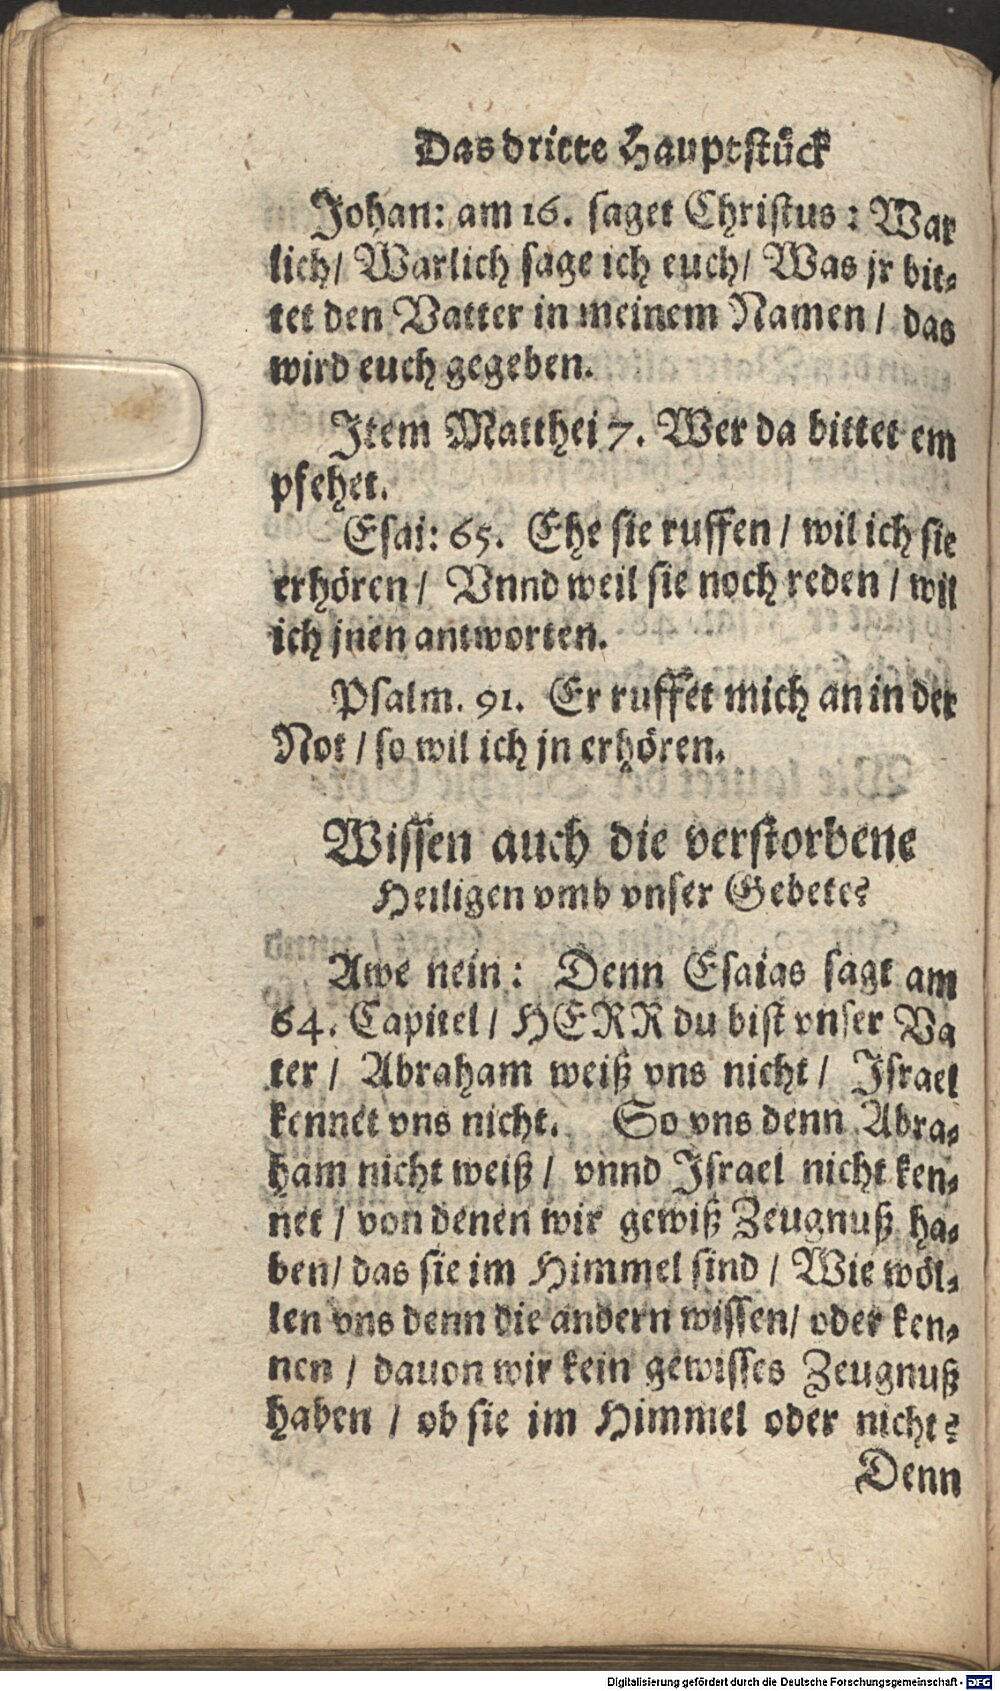 Das dritte Hauptstück
Johan: am 16. saget Christus: War
lich/ Warlich sage ich euch/ Was jr bit-
tet den Vatter in meinem Namen/ das
wird euch gegeben.
Item Matthei 7. Wer da bittet em
pfehet.
Esai: 65. Ehe sie ruffen/ wil ich sie
erhören/ Vnnd weil sie noch reden/ wil
ich jnen antworten.
Psalm. 91. Er ruffet mich an in der
Not/ so wil ich jn erhören.
Wissen auch die verstorbene
Heiligen vmb vnser Gebete?
Awe nein: Denn Esaias sagt am
64. Capitel/ HERR du bist vnser Va
ter/ Abraham weiß vns nicht/ Israel
kennet vns nicht. So vns denn Abra-
ham nicht weiß/ vnnd Israel nicht ken-
net/ von denen wir gewiß Zeugnuß ha-
ben/ das sie im Himmel sind/ Wie wöl-
len vns denn die andern wissen/ oder ken-
nen/ dauon wir kein gewisses Zeugnuß
haben/ ob sie im Himmel oder nicht?
Denn
Digitalisierung gefördert durch die Deutsche Forschungsgemeinschaft - DFG